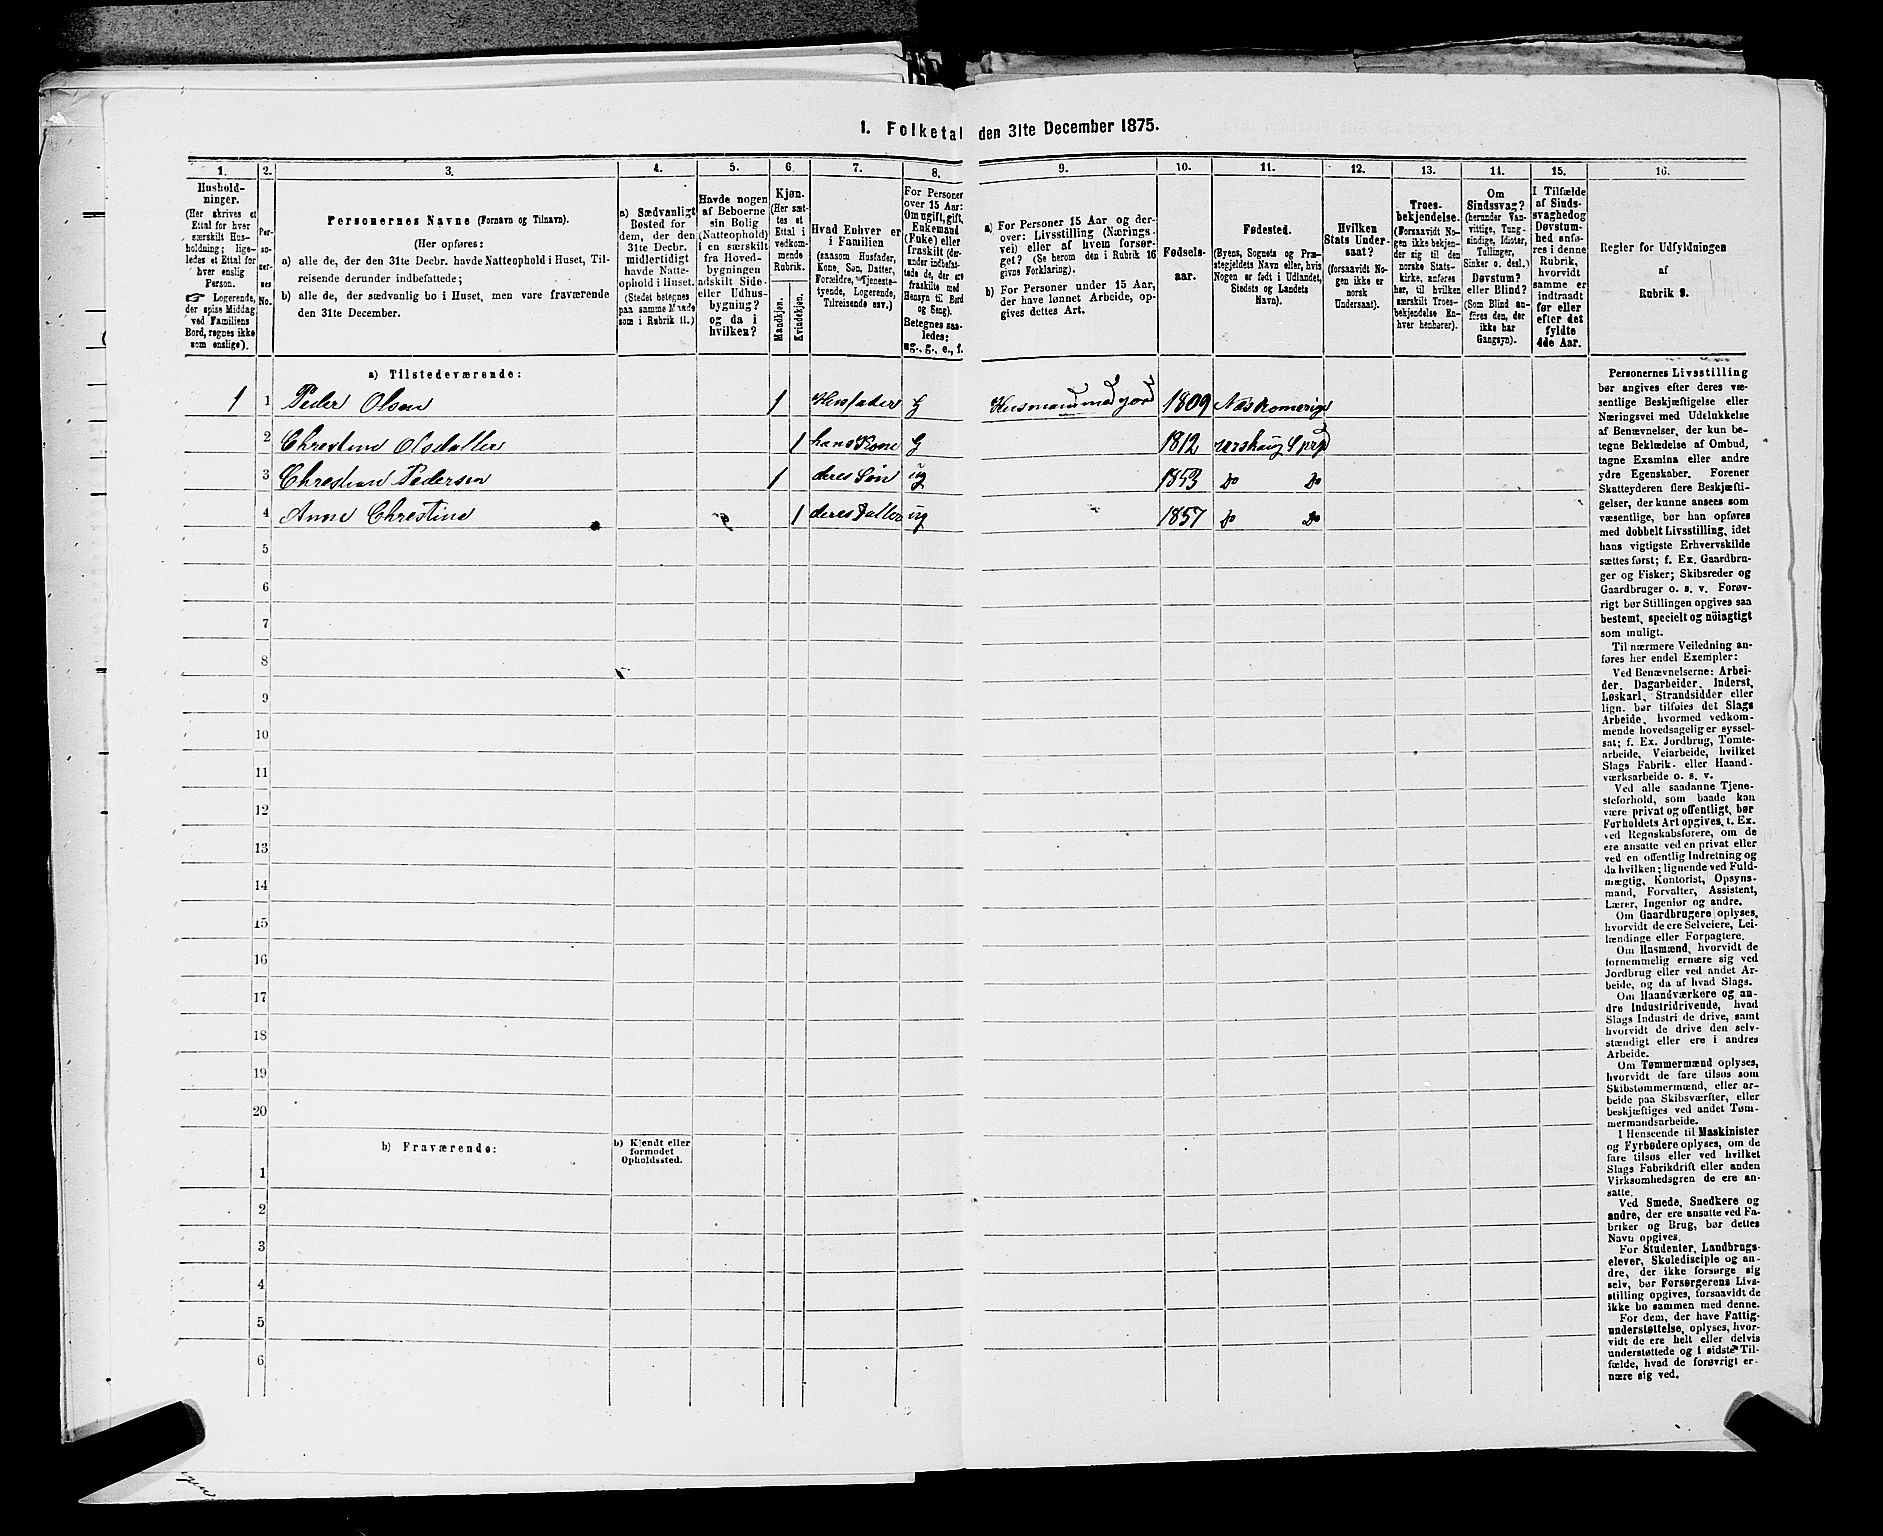 1. Folketal den 31te December 1875.
1.
Hushold-
ninger.
(Her skrives et
Ettal for hver
særskilt Hus-
holdning; lige-
ledes et Ettal for
hver enslig
Person.
☞ Logerende,
der spise Middag
ved Familiens
Bord, regnes ikke
som enslige).
2.
Per-
so-
ner-
nes
No.
3.
Personernes Navne (Fornavn og Tilnavn).
(Her opføres:
a) alle de, der den 31te Decbr. havde Natteophold i Huset, Til-
reisende derunder indbefattede;
b) alle de, der sædvanlig bo i Huset, men vare fraværende
den 31te December.
4.
a) Sædvanligt
Bosted for
dem, der den
31te Decbr.
midlertidigt
havde Natte-
ophold i Huset.
(Stedet betegnes
paa samme Maade
som i Rubrik 11.)
5.
Havde nogen
af Beboerne
sin Bolig
(Natteophold)
i en særskilt
fra Hoved-
bygningen
adskilt Side-
eller Udhus-
bygning?
og da i
hvilken?
6.
Kjøn.
(Her sæt-
tes et
Ettal i
vedkom-
mende
Rubrik.
Mandkjøn.
Kvindekjøn.
7.
Hvad Enhver er
i Familien
(saasom Husfader,
Kone, Søn, Datter,
Forældre, Tjeneste-
tyende, Logerende,
Tilreisende osv.)
8.
For Personer
over 15 Aar:
Om ugift, gift,
Enkemand
(Enke) eller
fraskilt (der-
under indbefat-
tede de, der ere
fraskilte med
Hensyn til Bord
og Seng).
Betegnes saa-
ledes:
ug., g., e., f.
9.
a) For Personer 15 Aar og der-
over: Livsstilling (Nærings-
vei) eller af hvem forsør-
get? (Se herom den i Rubrik 16
givne Forklaring).
b) For Personer under 15 Aar,
der have lønnet Arbeide, op-
gives dettes Art.
10.
Fødsels-
aar.
11.
Fødested.
(Byens, Sognets og Præ-
stegjeldets Navn eller, hvis
Nogen er født i Udlandet,
Stedets og Landets
Navn).
12.
Hvilken
Stats Under-
saat?
(forsaavidt No-
gen ikke er
norsk
Undersaat).
13.
Troes-
bekjendelse.
(Forsaavidt No-
gen ikke bekjen-
der sig til den
norske Stats-
kirke, anføres
her, til hvilken
særskilt Troes-
bekjendelse En-
hver henhører).
14.
Om
Sindssvag?
(herunder Van-
vittige, Tung-
sindige, Idioter,
Tullinger,
Sinker o. desl.)
Døvstum?
eller Blind?
(Som Blind an-
føres den, der
ikke har
Gangsyn).
15.
I Tilfælde
af Sinds-
svaghed og
Døvstum-
hed anfø-
res i denne
Rubrik,
hvorvidt
samme er
indtraadt
før eller
efter det
fyldte
4de Aar.
16.
Regler for Udfyldningen
af
Rubrik 9.
a) Tilstedeværende:
1 1 Peder Olsen 1 Husfader G Husmand med jord 1809 Næs Romerige
2 Chrestine Olsdatter 1 hans Kone G 1812
3 Chrestian Pedersen 1 deres Søn ug 1853 Do Do
4 Anne Chrestine 1 deres Datter ug 1857 Do Do
5
6
7
8
9
10
11
12
13
14
15
16
17
18
19
20
b) Fraværende:
b) Kjendt eller
formodet
Opholdssted.
1
2
3
4
5
6
Personernes Livsstilling
bør angives efter deres væ-
sentlige Beskjæftigelse eller
Næringsvei med Udelukkelse
af Benævnelser, der kun be-
tegne Beklædelse af Ombud,
tagne Examina eller andre
ydre Egenskaber. Forener
Skatteyderen flere Beskjæfti-
gelser, der kunne ansees som
væsentlige, bør han opføres
med dobbelt Livsstilling, idet
hans vigtigste Erhvervskilde
sættes først; f. Ex. Gaardbru-
ger og Fisker; Skibsreder og
Gaardbruger o. s. v. Forøv-
rigt bør Stillingen opgives saa
bestemt, specielt og nöiagtigt
som muligt.
Til nærmere Veiledning an-
føres her endel Exempler:
Ved Benævnelserne: Arbei-
der, Dagarbeider, Inderst,
Løskarl, Strandsidder eller
lign. bør tilføies det Slags
Arbeide, hvormed vedkom-
mende hovedsagelig er syssel-
sat; f. Ex. Jordbrug, Tomte-
arbeide, Veiarbeide, hvilket
Slags Fabrik- eller Haand-
værksarbeide o. s. v.
Ved alle saadanne Tjene-
steforhold, som baade kan
være privat og offentligt, bør
Forholdets Art opgives, t. Ex.
ved Regnskabsførere, om de
ere ansatte ved en privat eller
ved en offentlig Indretning og
da hvilken; lignende ved Fuld-
mægtig, Kontorist, Opsyns-
mand, Forvalter, Assistent,
Lærer, Ingeniør og andre.
Om Gaardbrugere oplyses,
hvorvidt de ere Selveiere, Lei-
lændinge eller Forpagtere.
Om Husmænd, hvorvidt de
fornemmelig ernære sig ved
Jordbrug eller ved andet Ar-
beide, og da af hvad Slags.
Om Haandværkere og an-
dre Industridrivende, hvad
Slags Industri de drive, samt
hvorvidt de drive den selv-
stændigt eller ere i andres
Arbeide.
Om Tømmermænd oplyses,
hvorvidt de fare tilsøs som
Skibstømmermænd, eller ar-
beide paa Skibsværfter, eller
beskjæftiges ved andet Tøm-
mermandsarbeide.
I Henseende til Maskinister
og Fyrbødere oplyses, om de
fare tilsøs eller ved hvilket
Slags Fabrikdrift eller anden
Virksomhedsgren de ere an-
satte.
Ved Smede, Snedkere og
andre, der ere ansatte ved Fa-
briker og Brug, bør dettes
Navn opgives.
For Studenter, Landbrugs-
elever, Skoledisciple og an-
dre, der ikke forsørge sig
selv, bør Forsørgerens Livs-
stilling opgives, forsaavidt de
ikke bo sammen med denne.
For dem, der have Fattig-
understøttelse, oplyses, hvor-
vidt de ere helt eller delvis
understøttede og i sidste Til-
fælde, hvad de forøvrigt er-
nære sig ved.